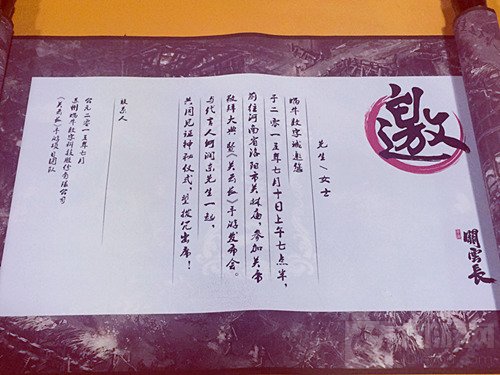 邀
關雲長
先生/女士
蜗牛数字诚邀您
于二零一五年七月十日上午七点半，
前往河南省洛阳市关林庙，参加关帝
敬拜大典暨《关云长》手游发布会。
与代言人何润东先生一起，
共同见证神秘仪式，望拨冗出席！
联系人
公元二零一五年七月
苏州蜗牛数字科技股份有限公司
《关云长》手游项目团队